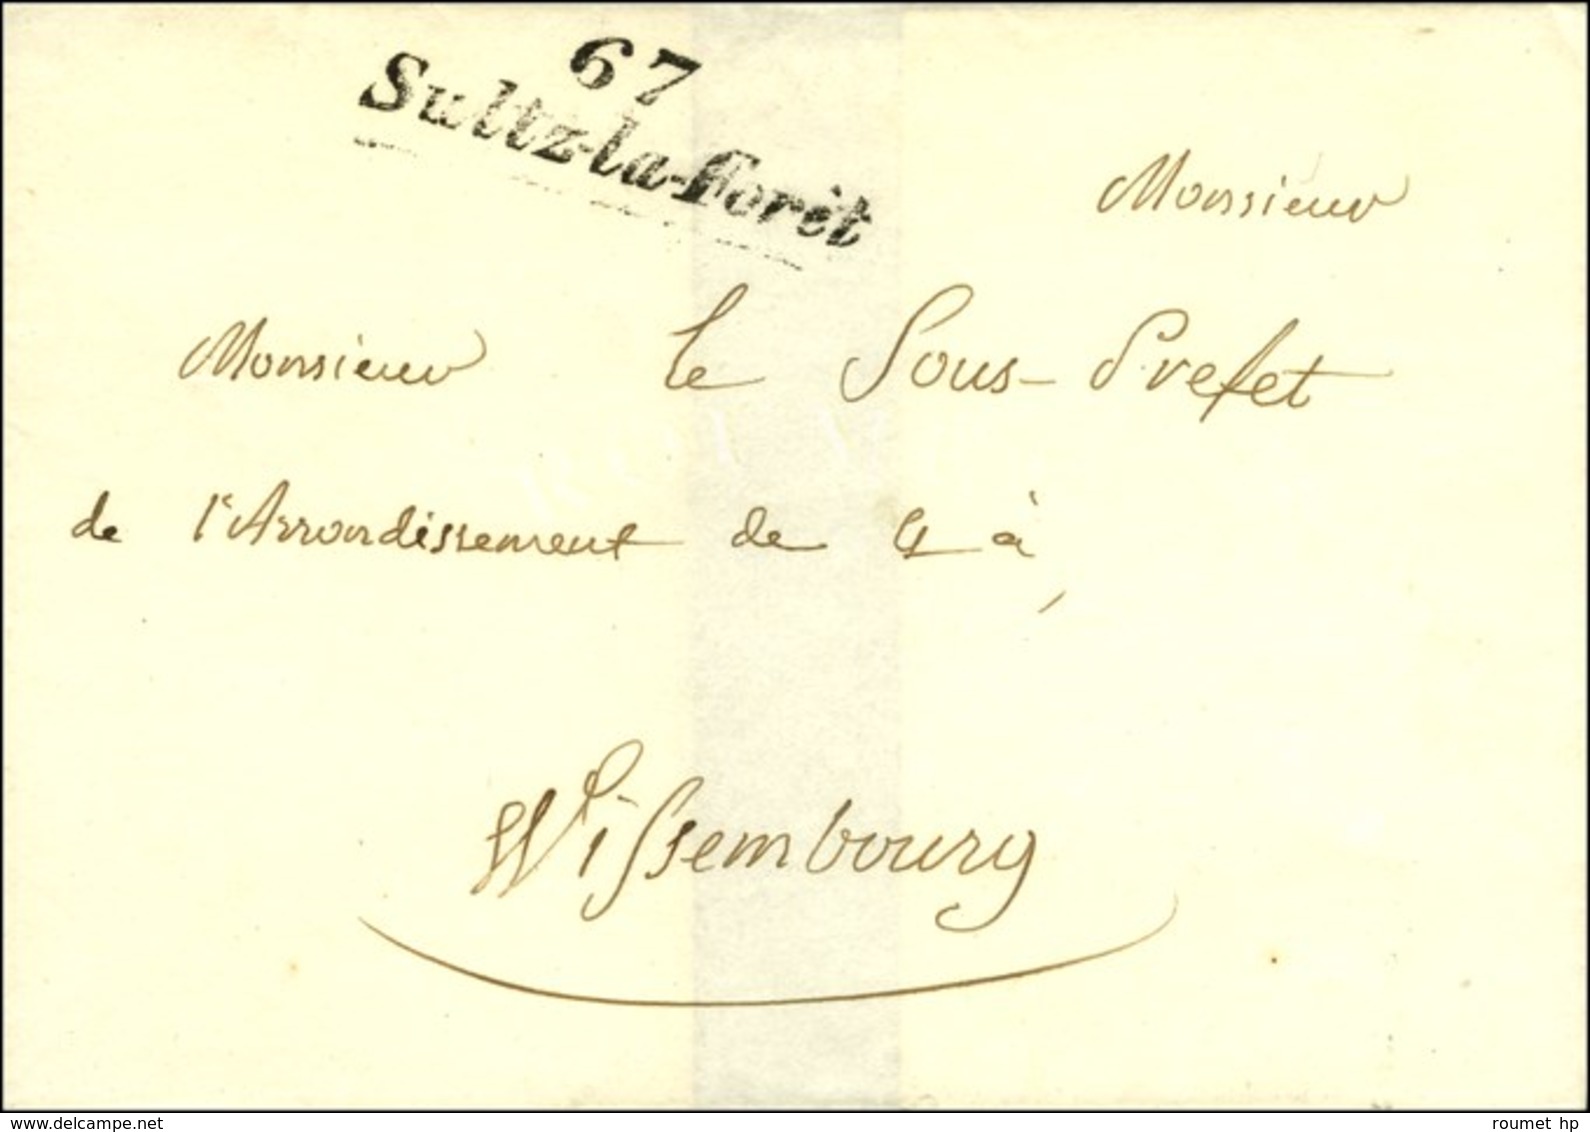 67
Sultz-la-Forêt
Monsieur
Monsieur le Sous-Prefet
de l'Arrondissement de et à
Wissembourg
www.delcampe.net
roumet hp